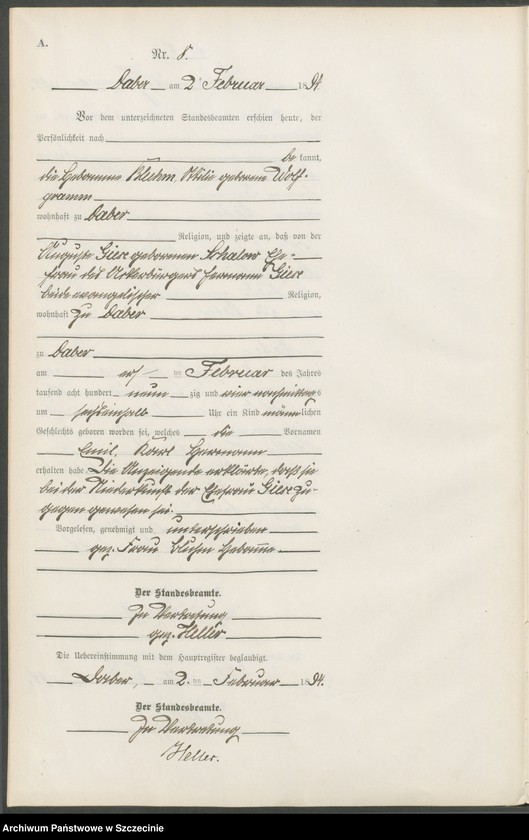 A.
Nr. 8.
Daber am 2ten Februar 1894
Vor dem unterzeichneten Standesbeamten erschien heute, der
Persönlichkeit nach
bekannt,
die Hebamme Bluhm, Otilie geborene Wolf-
gramm
wohnhaft zu Daber
Religion, und zeigte an, daß von der
Auguste Giese geborenen Schalow Ehe-
frau des Ackerbürgers Hermann Giese
beide evangelischer Religion,
wohnhaft zu Daber
zu Daber
am ersten Februar des Jahres
tausend acht hundert neunzig und vier vormittags
um sechseinhalb Uhr ein Kind männlichen
Geschlechts geboren worden sei, welches die Vornamen
Emil, Karl Hermann
erhalten habe. Die Anzeigende erklärte, daß sie
bei der Niederkunft der Ehefrau Giese zu-
gegen gewesen sei.
Vorgelesen, genehmigt und unterschrieben
gez. Frau Bluhm Hebamme
Der Standesbeamte.
In Vertretung
gez. Heller
Die Uebereinstimmung mit dem Hauptregister beglaubigt.
Daber, am 2. ten Februar 1894.
Der Standesbeamte.
In Vertretung
Heller.
Archiwum Państwowe w Szczecinie